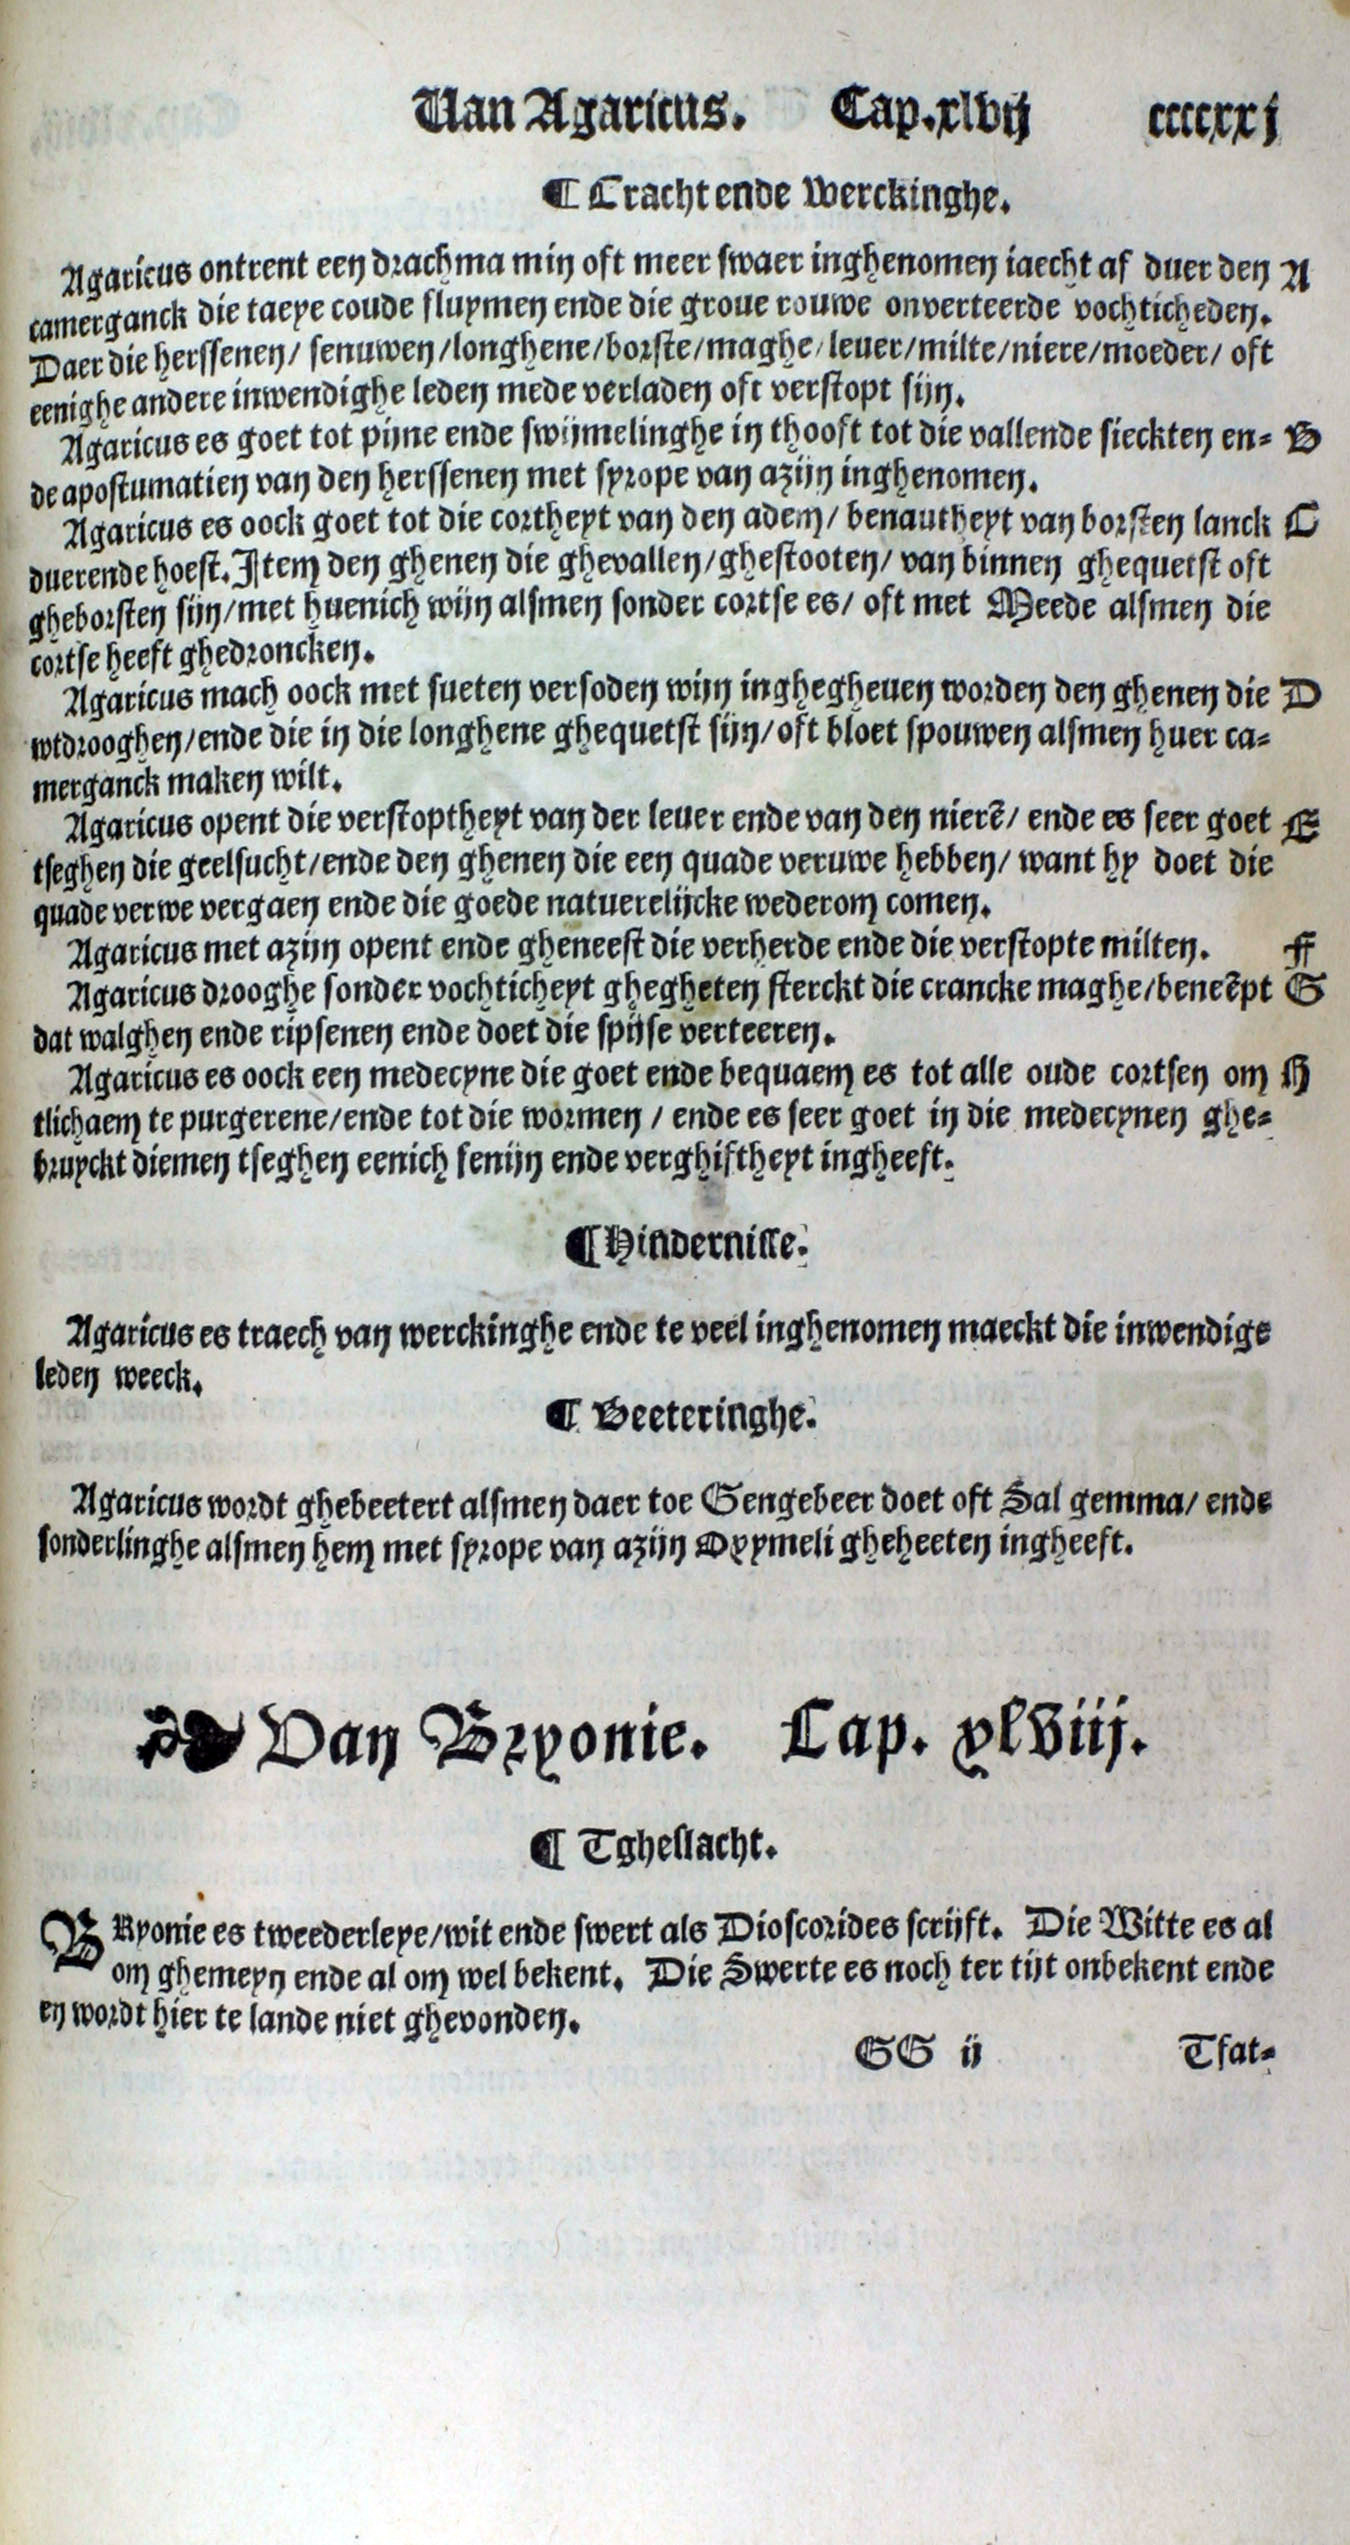 Van Agaricus. Cap.xlvij ccccxxj
¶ Cracht ende Werckinghe.
Agaricus ontrent een drachma min oft meer swaer inghenomen iaecht af duer den A
camerganck die taeye coude fluymen ende die groue rouwe onverteerde vochticheden.
Daer die herssenen/ senuwen/longhene/borste/maghe/leuer/milte/niere/moeder/ oft
eenighe andere inwendighe leden mede verladen oft verstopt sijn.
Agaricus es goet tot pijne ende swijmelinghe in thooft tot die vallende sieckten en= B
de apostumatien van den herssenen met syrope van azijn inghenomen.
Agaricus es oock goet tot die cortheyt van den adem/ benautheyt van borsten lanck C
duerende hoest. Item den ghenen die ghevallen/ghestooten/ van binnen ghequetst oft
gheborsten sijn/met huenich wijn alsmen sonder cortse es/ oft met Meede alsmen die
cortse heeft ghedroncken.
Agaricus mach oock met sueten versoden wijn inghegheuen worden den ghenen die D
wtdrooghen/ende die in die longhene ghequetst sijn/oft bloet spouwen alsmen huer ca=
merganck maken wilt.
Agaricus opent die verstoptheyt van der leuer ende van den nierē/ ende es seer goet E
tseghen die geelsucht/ende den ghenen die een quade veruwe hebben/ want hy doet die
quade verwe vergaen ende die goede natuerelijcke wederom comen.
Agaricus met azijn opent ende gheneest die verherde ende die verstopte milten. F
Agaricus drooghe sonder vochticheyt ghegheten sterckt die crancke maghe/beneēpt G
dat walghen ende ripsenen ende doet die spijse verteeren.
Agaricus es oock een medecyne die goet ende bequaem es tot alle oude cortsen om H
tlichaem te purgerene/ende tot die wormen / ende es seer goet in die medecynen ghe=
bruyckt diemen tseghen eenich fenijn ende verghiftheyt ingheeft.
¶ Hindernisse.
Agaricus es traech van werckinghe ende te veel inghenomen maeckt die inwendige
leden weeck.
¶ Beeteringhe.
Agaricus wordt ghebeetert alsmen daer toe Gengebeer doet oft Sal gemma/ ende
sonderlinghe alsmen hem met syrope van azijn Oxymeli gheheeten ingheeft.
Van Bryonie. Cap. xlviij.
¶ Tgheslacht.
BRyonie es tweederleye/wit ende swert als Dioscorides scrijft. Die Witte es al
om ghemeyn ende al om wel bekent. Die Swerte es noch ter tijt onbekent ende
en wordt hier te lande niet ghevonden.
GG ij Tfat=